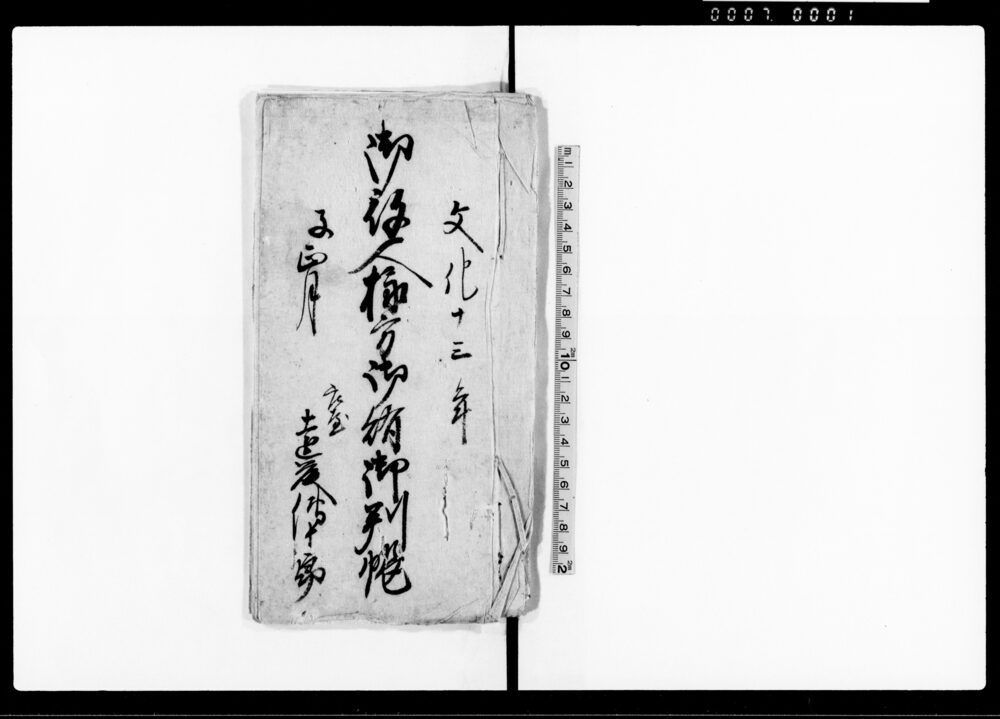 0007. 0001
文化十三年
御役人様方御賄御判帳
子正月
庄屋
土邊彦傳十郎
m 1 2 3 4 5 6 7 8 9 10 1 2 3 4 5 6 7 8 9 2